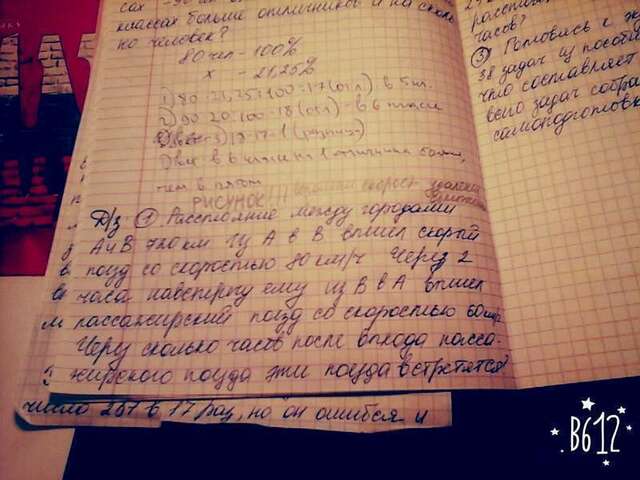 сах - 90
классах больше отличников и на сколь-
ко человек?
80 чел - 100%
x - 21,25%
1) 80 · 21,25 : 100 = 17 (отл.) в 5 кл.
2) 90 · 20 : 100 = 18 (отл) - в 6 классе
3) 18 - 17 = 1
в 6 классе на 1 отличника больше,
чем в пятом
РИСУНОК!!! скорост удаления
Д/з ① Расстояние между городами
А и В 720 км. Из А в В вышел скорый
поезд со скоростью 80 км/ч. Через 2
часа навстречу ему из В в А вышел
пассажирский поезд со скоростью 60 км/ч
Через сколько часов после выхода пасса-
жирского поезда эти поезда встретятся?
число 251 в 17 раз, но он ошибся и
часов?
③ Готовясь к
38 задач из пособи
что составляет
всего задач собра
самоподготовк
B612